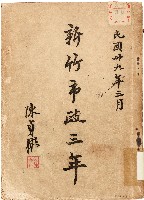 民國卅九年三月
新竹市政三年
陳貞彬